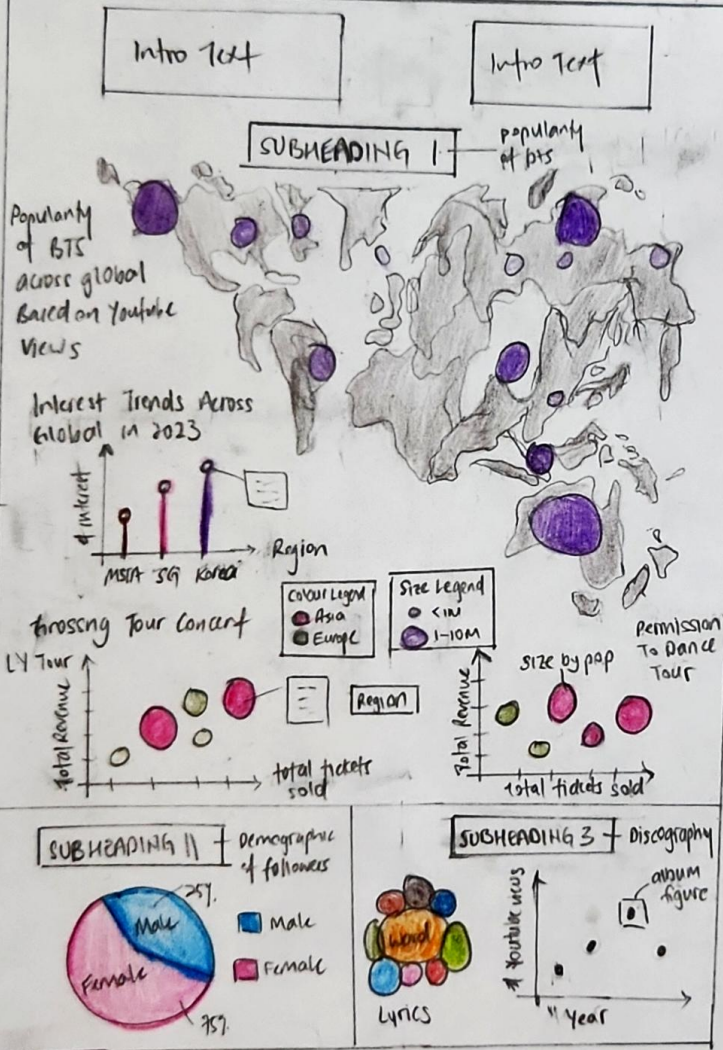 Intro Text
Intro Text
SUBHEADING 1
popularity
of bts
Popularity
of BTS
across global
Based on Youtube
Views
Interest Trends Across
Global in 2023
# interest
MSIA SG Korea
Region
Colour Legend
Asia
Europe
Size Legend
<1M
1-10M
Grossng Tour Concert
LY Tour
Total Revenue
total tickets
sold
Region
Permission
To Dance
Tour
size by pop
Total Revenue
total tickets sold
SUBHEADING 11
Demographic
of followers
25%
Male
Female
75%
Male
Female
SUBHEADING 3
Discography
Word
Lyrics
album
figure
# Youtube views
Year